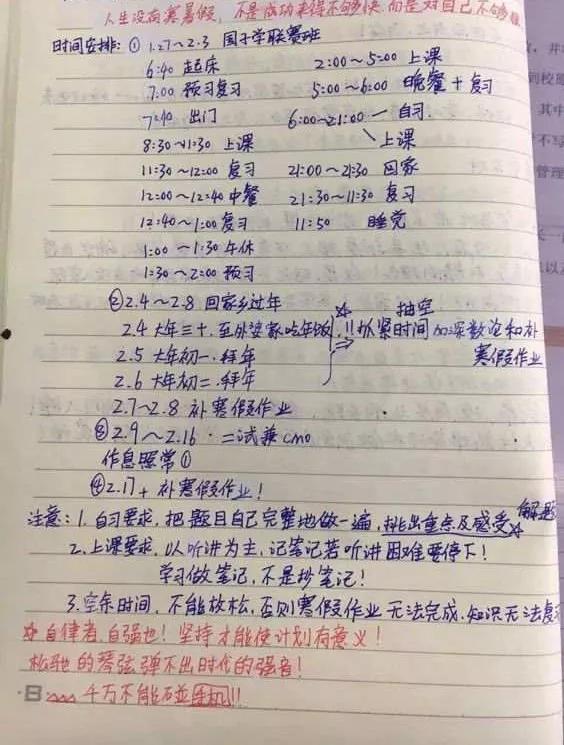 人生没有寒暑假，不是成功来得不够快 而是对自己不够狠
时间安排：① 1.27～2.3 国子学联赛班
6:40 起床 2:00～5:00 上课
7:00 预习复习 5:00～6:00 晚餐＋复习
7:40 出门 6:00～21:00 — 自习
8:30～11:30 上课 上课
11:30～12:00 复习 21:00～21:30 回家
12:00～12:40 中餐 21:30～11:30 复习
12:40～1:00 复习 11:50 睡觉
1:00～1:30 午休
1:30～2:00 预习
②2.4～2.8 回家乡过年 抽空
2.4 大年三十.至外婆家吃年饭 !!抓紧时间 加深数论和补
2.5 大年初一.拜年 寒假作业
2.6 大年初二.拜年
2.7～2.8 补寒假作业
③2.9～2.16.二试兼cmo
作息照常①
④2.17＋ 补寒假作业！
注意：1.自习要求，把题目自己完整地做一遍，挑出重点及感受 解题
2.上课要求，以听讲为主，记笔记若听讲困难要停下！
学习做笔记，不是抄笔记！
3.空余时间，不能放松，否则寒假作业无法完成，知识无法复
☆自律者，自强也！坚持才能使计划有意义！
松驰的琴弦弹不出时代的强音！
千万不能碰手机!!